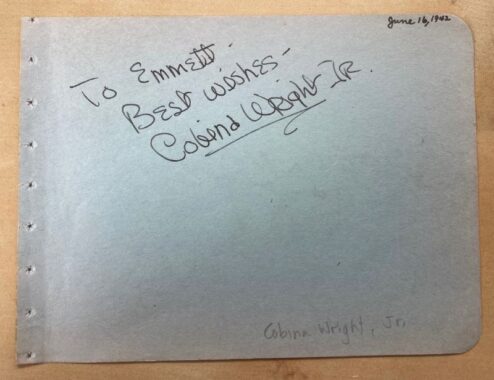 June 16, 1942
To Emmett-
Best wishes-
Cobina Wright Jr.
Cobina Wright, Jr.